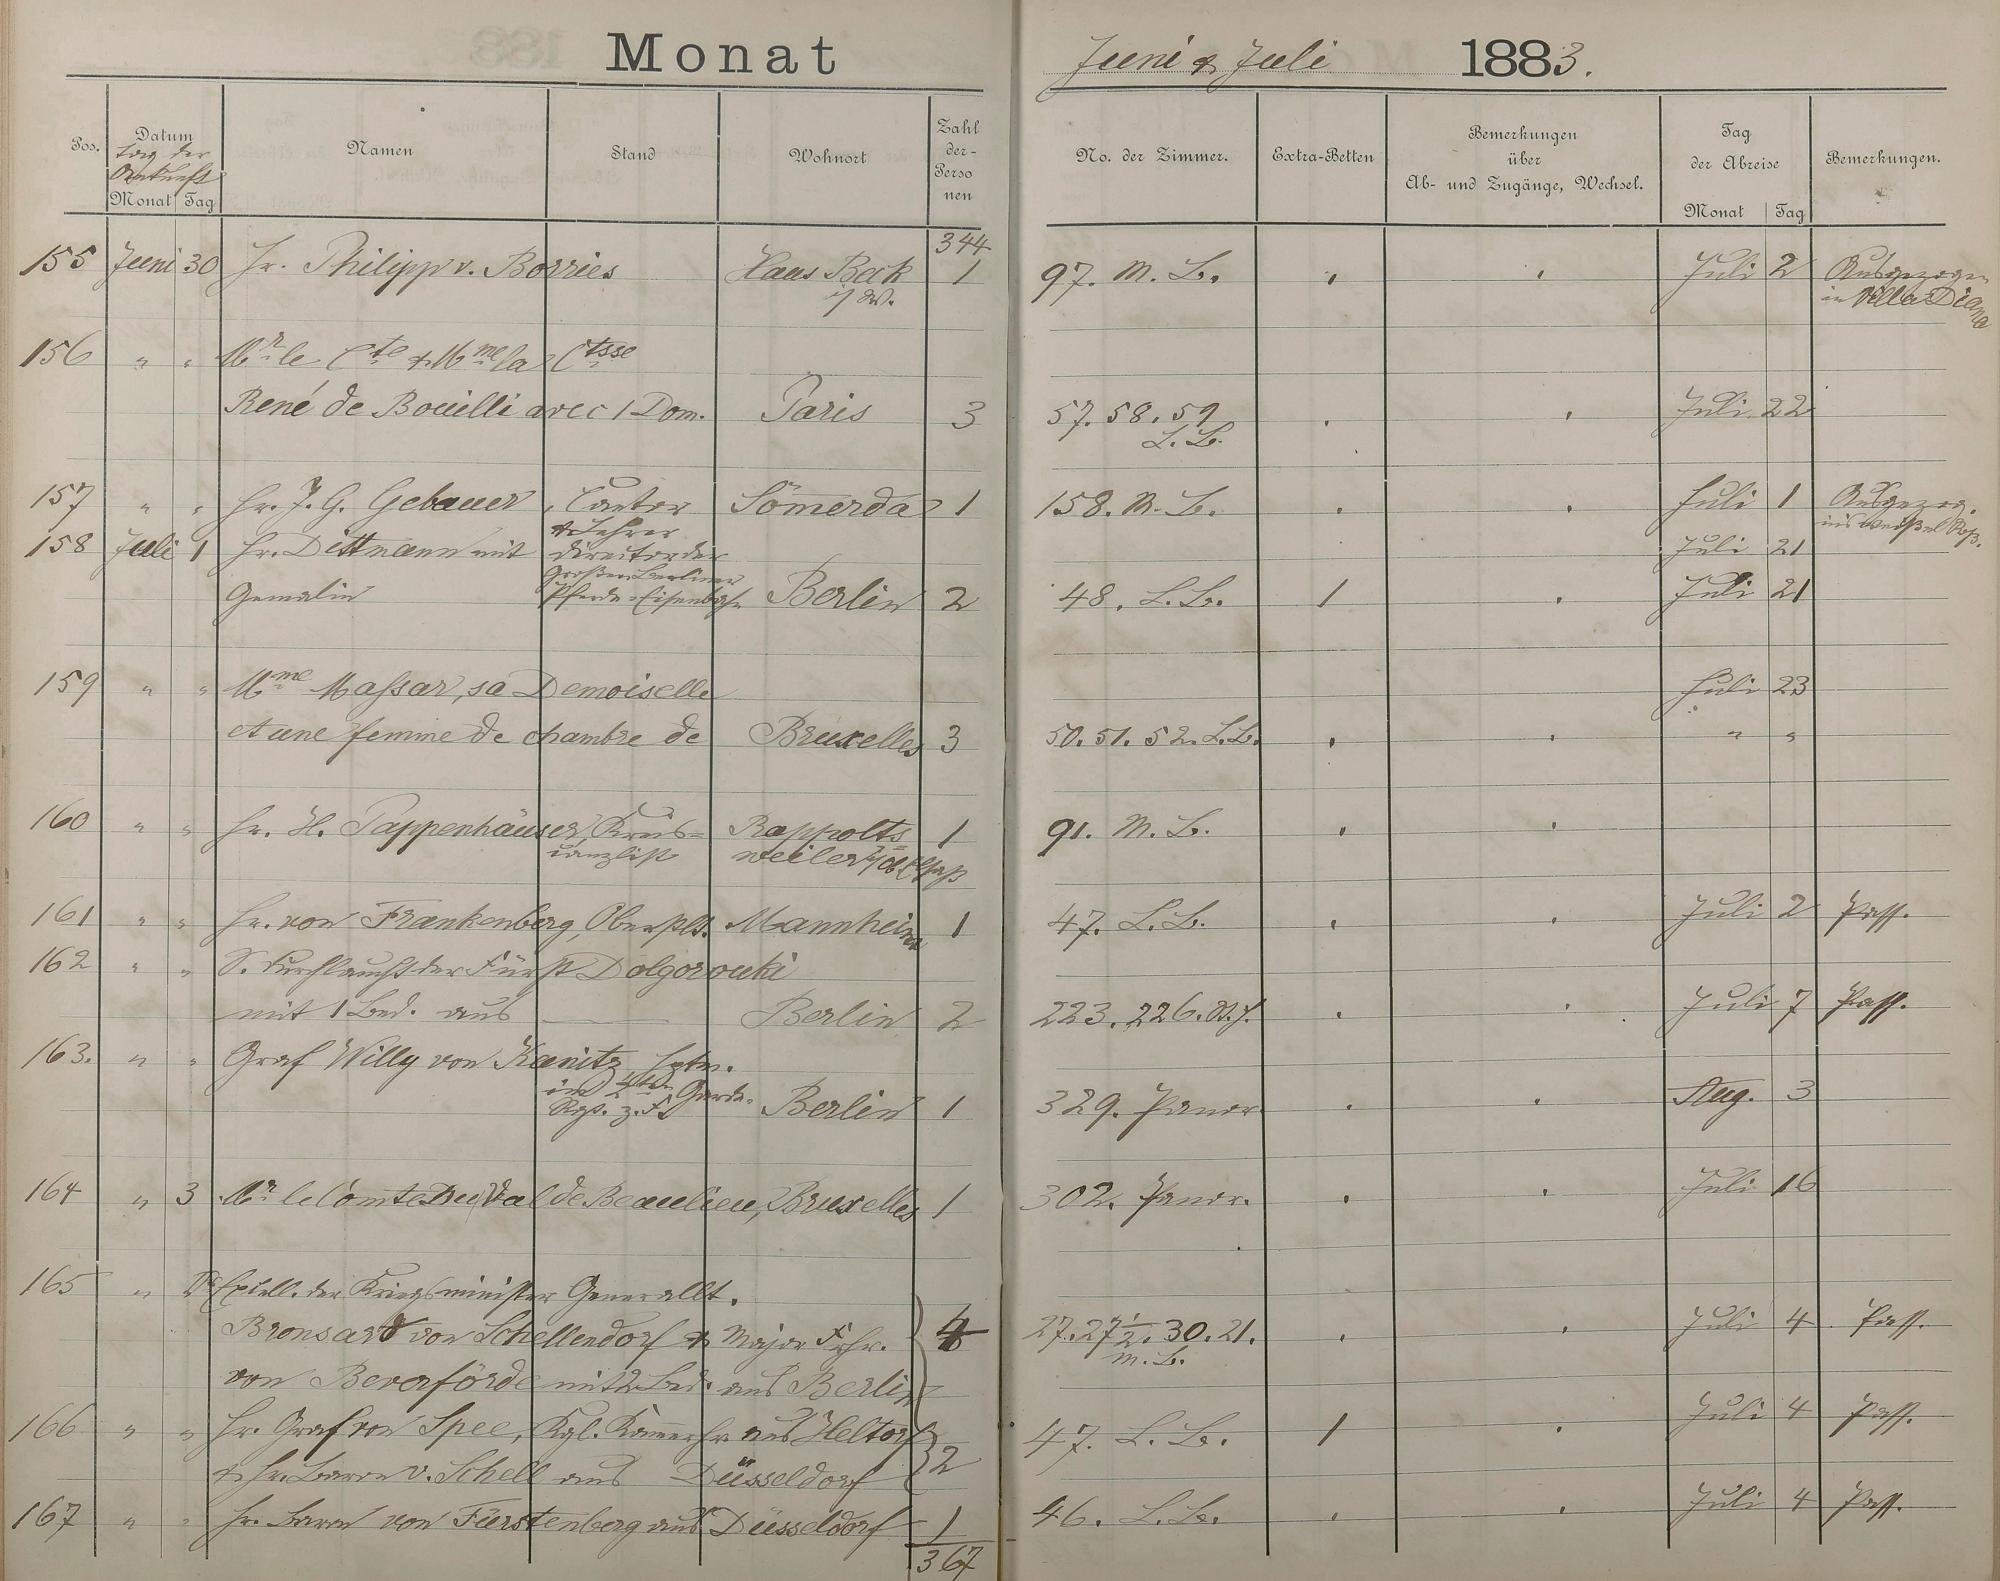 Monat Juni & Juli 1883.
Pos. Datum Namen Stand Wohnort Zahl der Personen No. der Zimmer. Extra-Betten Bemerkungen über Ab- und Zugänge, Wechsel. Tag der Abreise Bemerkungen.
Tag der Ankunft
Monat Tag Monat Tag
344
155 Juni 30 Hr. Philipp v. Borries Haus Beck 1 97. M. B. Juli 2 Ausgezogen
i/W. in Villa Diana
156 " " Mr. le Cte & Mme la Ctsse
René de Bouilli avec 1 Dom. Paris 3 57. 58. 59 Juli 22
L. B.
157 " " Hr. J. G. Gebauer, Cantor Sömerda 1 158. M. B. Juli 1 Ausgezog.
& Lehrer ins weiße Roß.
158 Juli 1 Hr. Dittmann mit Director der Juli 21
Großen Berliner
Gemalin Pferde-Eisenbahn Berlin 2 48. L. B. 1 Juli 21
159 " " Mme Maßar, sa Demoiselle Juli 23
et une femme de chambre de Bruxelles 3 50. 51. 52. L. B. " "
160 " " Hr. H. Pappenhäuser, Kreis- Rappolts 1 91. M. B.
canzlist weiler Elsaß
161 " " Hr. von Frankenberg, Mannheim 1 47. L. B. Juli 2 Pass.
162 " " S. Durchlaucht der Fürst Dolgorouki
mit 1 Bed. aus — Berlin 2 223. 226. Juli 7 Pass.
163. " " Graf Willy von Kanitz Hptm.
im 4ten Garde-
Rgt. z. F. Berlin 1 329. Panor. Aug. 3
164 " 3 Mr. le Comte Du Val de Beaulieu, Bruxelles 1 302. Panor. Juli 16
165 " Excell. der Kriegsminister Generallt.
Bronsard von Schellendorf & Major Frhr. 4 27. 27 1/2. 30. 21. Juli 4 Pass.
M. B.
von Beverförde mit 2 Bed. aus Berlin
166 " " Hr. Graf von Spee, Kgl. Kammerhr. aus Heltorf 47. L. B. 1 Juli 4 Pass.
& Hr. Baron v. Schell aus Düsseldorf 2
167 " " Hr. Baron von Fürstenberg aus Düsseldorf 1 46. L. B. Juli 4 Pass.
367